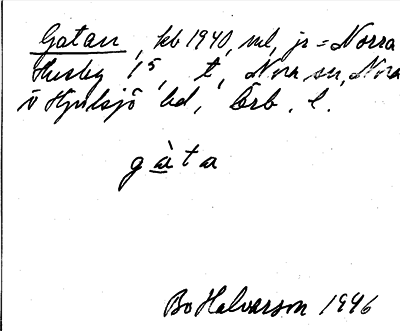 Gatan, kb 1940, vid, jr = Norra
Husby 1⁵, t, Nora sn, Nora
o Hjulsjö bd, Örb. l.
gàta
Bo Halvarson 1996